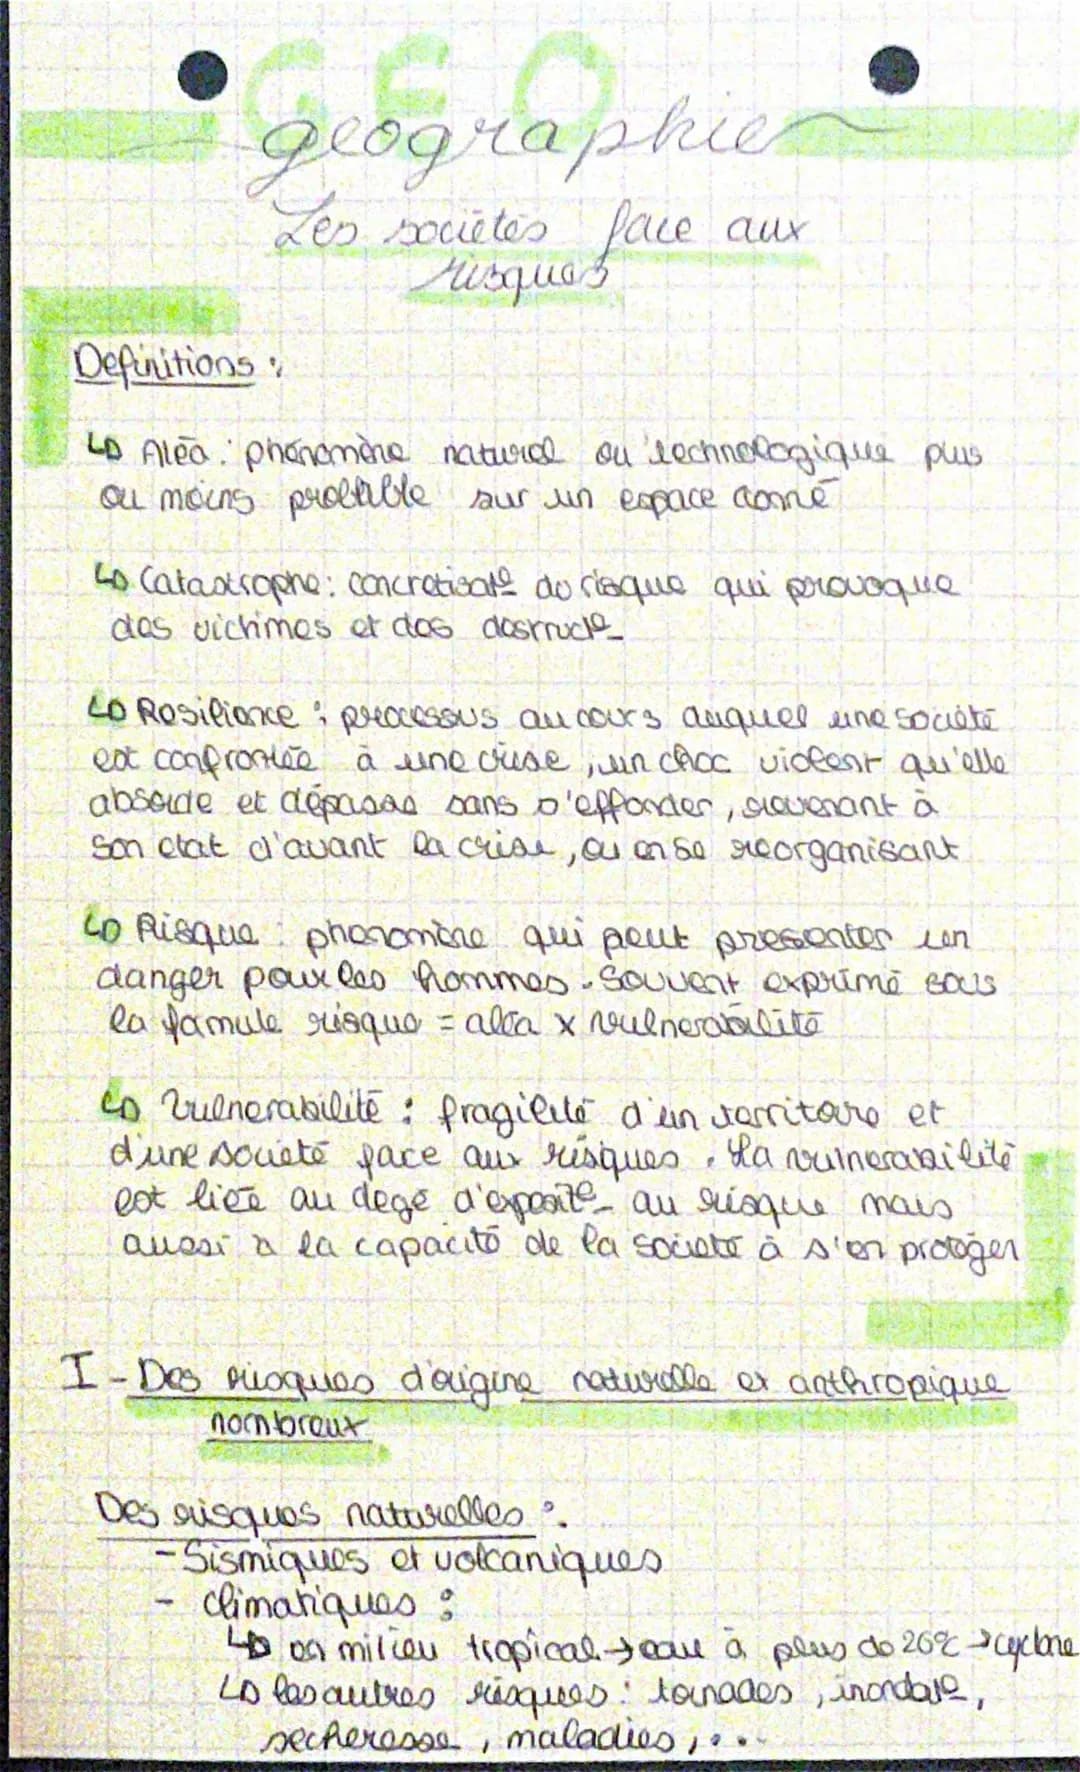 GEO
géographie
Les sociétés face aux
risques
Definitions :
↳ Aléa : phénomène naturel ou technologique plus
ou moins probable sur un espace donné
↳ Catastrophe : concretisat° du risque qui provoque
des victimes et des destruct°
↳ Resiliance : processus au cours duquel une société
est confrontée à une crise, un choc violent qu'elle
absorde et dépasse sans s'effonder, revenant à
son etat d'avant la crise, ou en se reorganisant
↳ Risque : phenomène qui peut presenter un
danger pour les hommes. Souvent exprimé sous
la famule risque = aléa x vulnerabilité
↳ Vulnerabilité : fragilité d'un territoire et
d'une société face aux risques. La vulnerabilité
est liée au degé d'exposit° au risque mais
aussi à la capacité de la societé à s'en protéger
I - Des risques d'origine naturelle et anthropique
nombreux
Des risques naturelles :
- Sismiques et volcaniques
- climatiques :
↳ en milieu tropical → eau à plus de 26°C → cyclone
↳ les autres risques : tornades, inondat°,
secheresse, maladies, ...